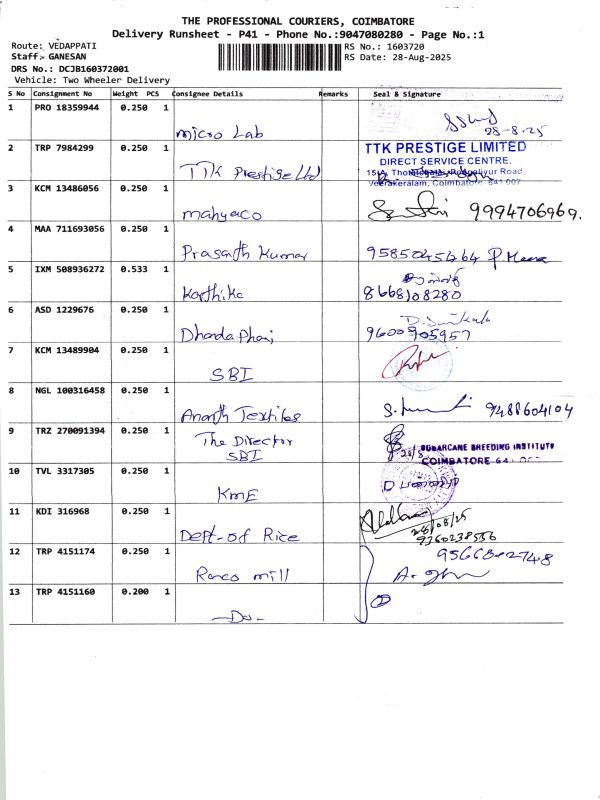 THE PROFESSIONAL COURIERS, COIMBATORE
Delivery Runsheet - P41 - Phone No.:9047080280 - Page No.:1
Route: VEDAPPATI
RS No.: 1603720
Staff:- GANESAN
RS Date: 28-Aug-2025
DRS No.: DCJB160372001
Vehicle: Two Wheeler Delivery
S No Consignment No Weight PCS Consignee Details Remarks Seal & Signature
1 PRO 18359944 0.250 1
Micro Lab 28-8-25
2 TRP 7984299 0.250 1 TTK PRESTIGE LIMITED
DIRECT SERVICE CENTRE,
TTK Prestige Ltd
Veerakeralam, Coimbatore 641 007
3 KCM 13486056 0.250 1
mahyaco 9994706969.
4 MAA 711693056 0.250 1
Prasanth Kumar 9585045464 P Meena
5 IXM 508936272 0.533 1
Karthika 8668108280
6 ASD 1229676 0.250 1
9600905957
7 KCM 13489904 0.250 1
SBI
8 NGL 100316458 0.250 1
Ananth Textiles 9488604104
9 TRZ 270091394 0.250 1 The Director SUGARCANE BREEDING INSTITUTE
SBI 28/8 COIMBATORE
10 TVL 3317305 0.250 1
KME
11 KDI 316968 0.250 1
Dept-of Rice 28/08/25
9360238556
12 TRP 4151174 0.250 1
mill
13 TRP 4151160 0.200 1
-Do-